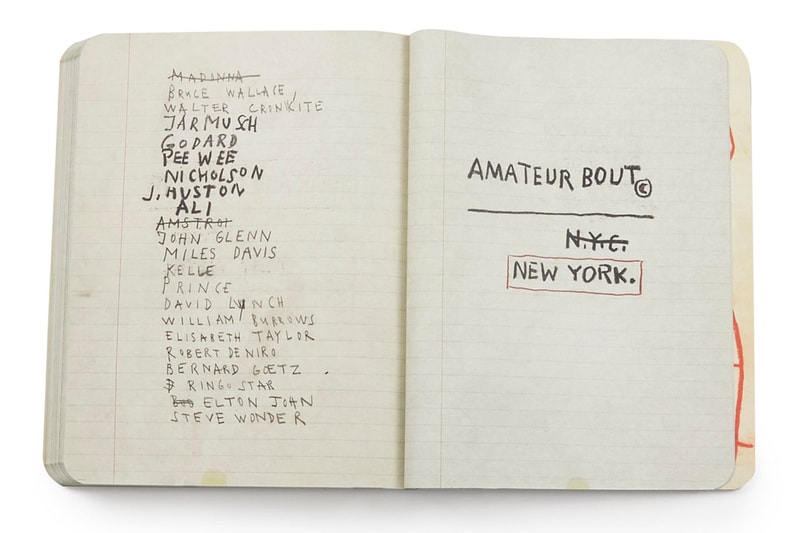 MADONNA
BRUCE WALLACE,
WALTER CRONKITE
JARMUSH
GODARD
PEE WEE
NICHOLSON
J. HUSTON
ALI
AMSTROI
JOHN GLENN
MILES DAVIS
KELLE
PRINCE
DAVID LYNCH
WILLIAM BURROWS
ELISABETH TAYLOR
ROBERT DENIRO
BERNARD GOETZ .
RINGO STAR
ELTON JOHN
STEVE WONDER
AMATEUR BOUT©
N.Y.C.
NEW YORK.